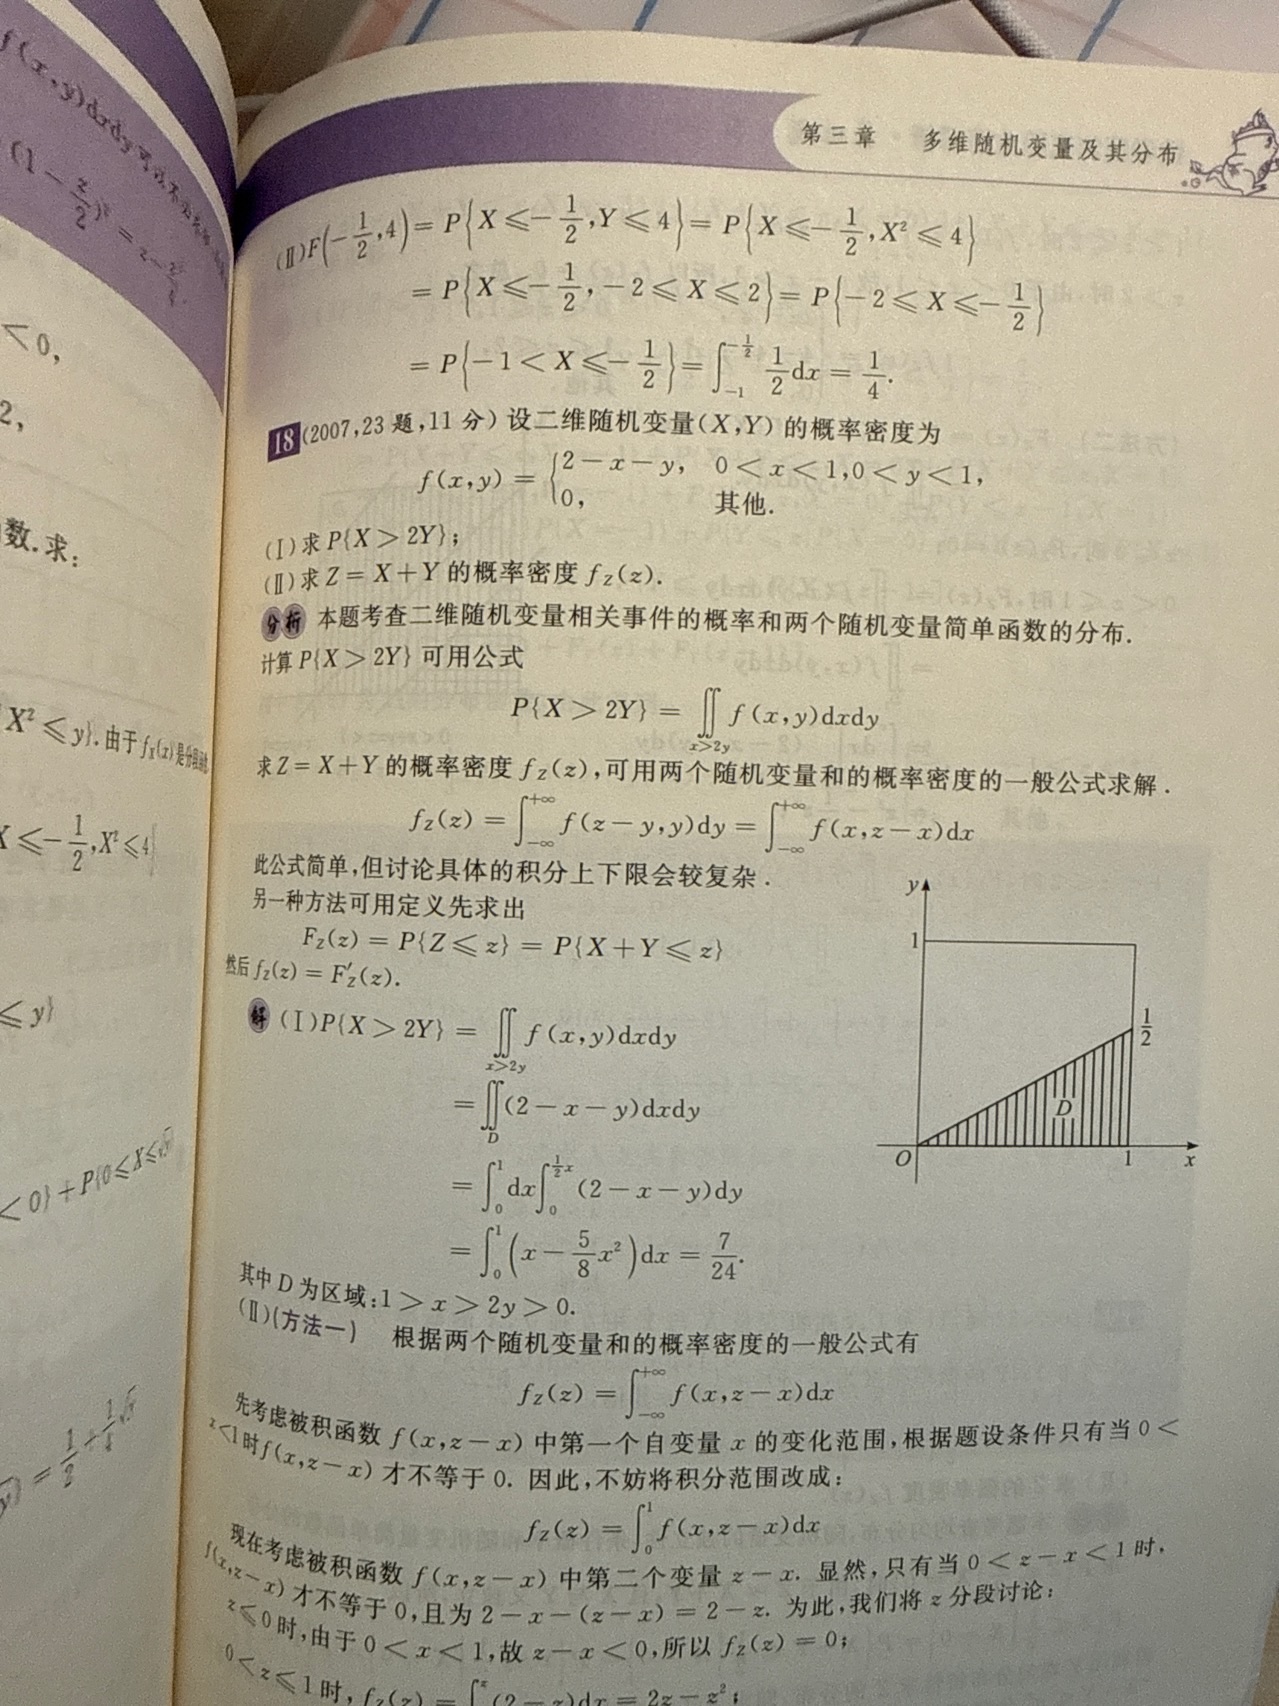 f(x,y)dxdy
(1-\frac{z}{2})^2=z-\frac{z^2}{4}.
<0,
2,
数.求:
X²≤y}.由于f_X(x)是分段函数
X≤-\frac{1}{2},X²≤4}
≤y}
<0}+P{0≤X≤√y}
=\frac{1}{2}+\frac{1}{4}√y
第三章 多维随机变量及其分布
(Ⅱ)F(-\frac{1}{2},4)=P{X≤-\frac{1}{2},Y≤4}=P{X≤-\frac{1}{2},X²≤4}
=P{X≤-\frac{1}{2},-2≤X≤2}=P{-2≤X≤-\frac{1}{2}}
=P{-1<X≤-\frac{1}{2}}=∫_{-1}^{-\frac{1}{2}}\frac{1}{2}dx=\frac{1}{4}.
18(2007,23题,11分)设二维随机变量(X,Y)的概率密度为
f(x,y)={2-x-y, 0<x<1,0<y<1,
0, 其他.
(Ⅰ)求P{X>2Y};
(Ⅱ)求Z=X+Y的概率密度f_Z(z).
分析 本题考查二维随机变量相关事件的概率和两个随机变量简单函数的分布.
计算P{X>2Y}可用公式
P{X>2Y}=∬_{x>2y}f(x,y)dxdy
求Z=X+Y的概率密度f_Z(z),可用两个随机变量和的概率密度的一般公式求解.
f_Z(z)=∫_{-∞}^{+∞}f(z-y,y)dy=∫_{-∞}^{+∞}f(x,z-x)dx
此公式简单,但讨论具体的积分上下限会较复杂.
另一种方法可用定义先求出
F_Z(z)=P{Z≤z}=P{X+Y≤z}
然后f_Z(z)=F′_Z(z).
解 (Ⅰ)P{X>2Y}=∬_{x>2y}f(x,y)dxdy
=∬_D(2-x-y)dxdy
=∫_0^1dx∫_0^{\frac{1}{2}x}(2-x-y)dy
=∫_0^1(x-\frac{5}{8}x²)dx=\frac{7}{24}.
y
1
\frac{1}{2}
D
O 1 x
其中D为区域:1>x>2y>0.
(Ⅱ)(方法一) 根据两个随机变量和的概率密度的一般公式有
f_Z(z)=∫_{-∞}^{+∞}f(x,z-x)dx
先考虑被积函数f(x,z-x)中第一个自变量x的变化范围,根据题设条件只有当0<
z<1时f(x,z-x)才不等于0.因此,不妨将积分范围改成:
f_Z(z)=∫_0^1f(x,z-x)dx
现在考虑被积函数f(x,z-x)中第二个变量z-x.显然,只有当0<z-x<1时,
f(x,z-x)才不等于0,且为2-x-(z-x)=2-z.为此,我们将z分段讨论:
z≤0时,由于0<x<1,故z-x<0,所以f_Z(z)=0;
0<z≤1时,f_Z(z)=∫^z(2-z)dx=2z-z²;